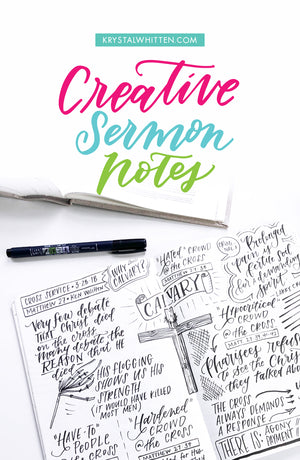 KRYSTALWHITTEN.COM
Creative
Sermon
Notes
CROSS SERVICE • 3·28·18
MATTHEW 27 • KEN WHITTEN
Very few debate
THAT CHRIST died
on the cross.
Many debate the
REASON that HE
died
WHY DID
CALVARY?
CALVARY!
HIS FLOGGING
SHOWS US HIS
STRENGTH
(IT WOULD HAVE KILLED
MOST MEN)
"HAVE-TO"
PEOPLE
@ the CROSS
"Hated" CROWD
@ the CROSS
MATTHEW 27:38
"Hardened"
CROWD
@ the CROSS
Prolonged
Hypocritical
CROWD
@ the CROSS
MATTHEW
Pharisees refuse
TO SEE the CHRIST
they talked About
The CROSS
ALWAYS DEMANDS
A RESPONSE
THERE IS:
AGONY
PAYMENT